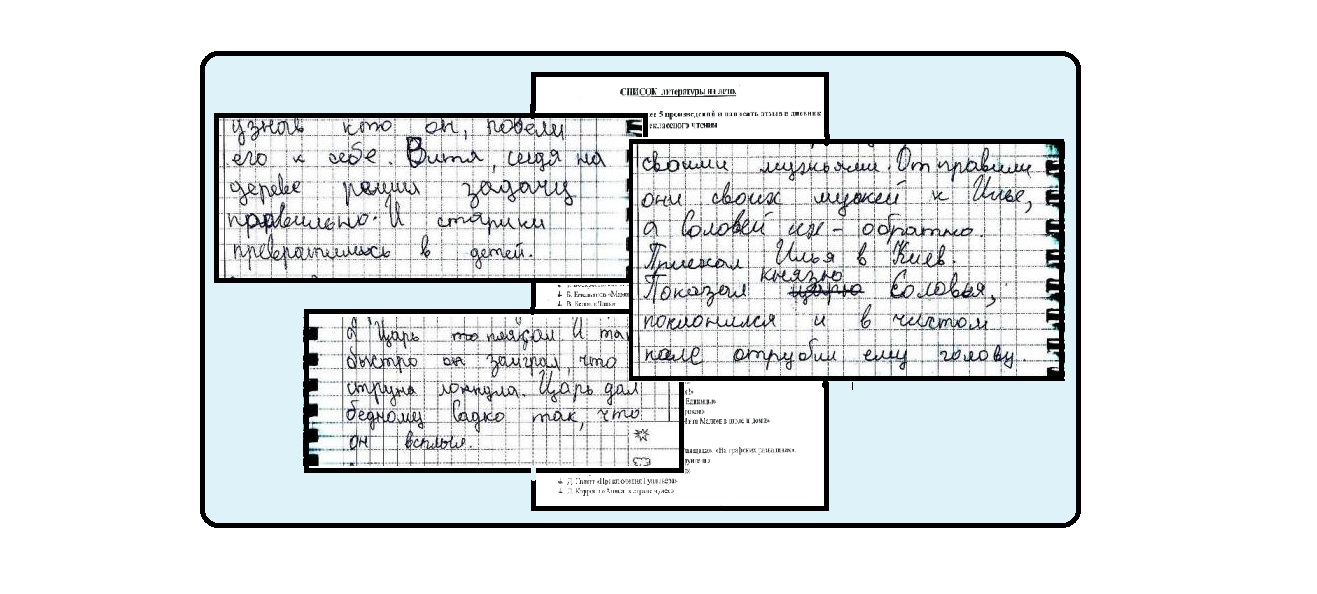 СПИСОК литературы на лето.
5 произведений и написать отзыв в дневник
классного чтения
узнав кто он, повели
его к себе. Витя, сидя на
дереве решил задачу
правильно. И старики
превратились в детей.
своими мужьями. Отправили
они своих мужей к Илье,
а Соловей их - обратно.
Приехал Илья в Киев.
князю
Показал царю Соловья,
поклонился и в чистом
поле отрубил ему голову.
Царь то пляж
быстро он заиграл, что
струна лопнула. Царь дал
бедному Садко так, что
он всплыл.
в школе и дома»
«На графских развалинах».
Д. Свифт «Приключения Гулливера»
Л. Кэррол «Алиса в стране чудес»